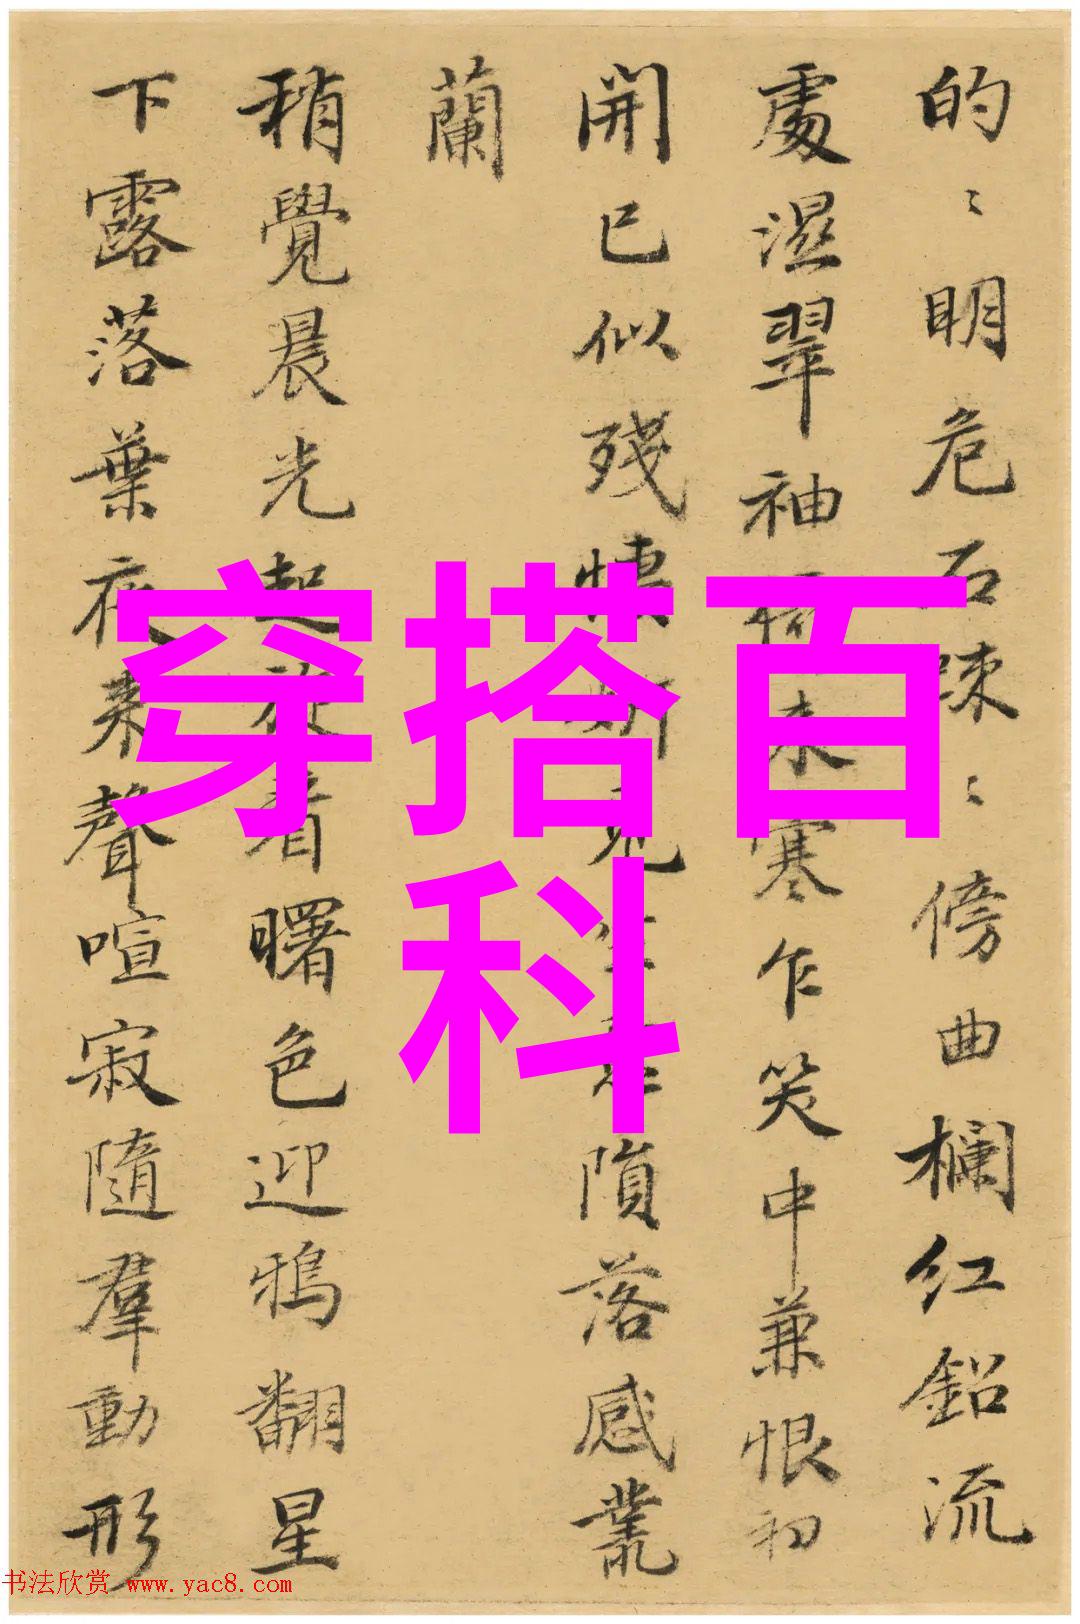 的〻明危石疎〻傍曲欄红鉛流
處濕翠袖未寒乍笑中兼恨初
開已似殘悽隕落感叢
蘭
稍覺晨光起看曙色迎鴉翻星
下露落葉夜来聲喧寂隨羣動形
穿搭百
科
书法欣赏 www.yac8.com